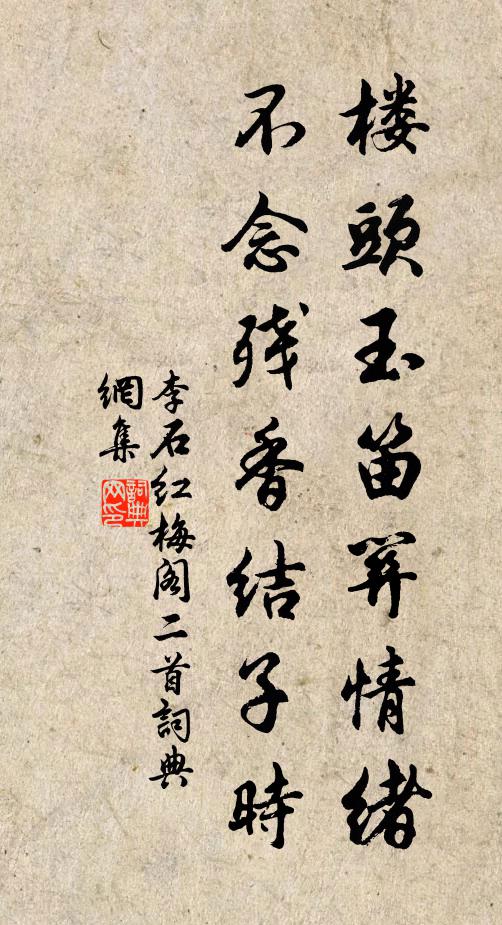 楼頭玉笛開情緒
不念残香结子時
李石红梅阁二首詞典
網集
詞典网印